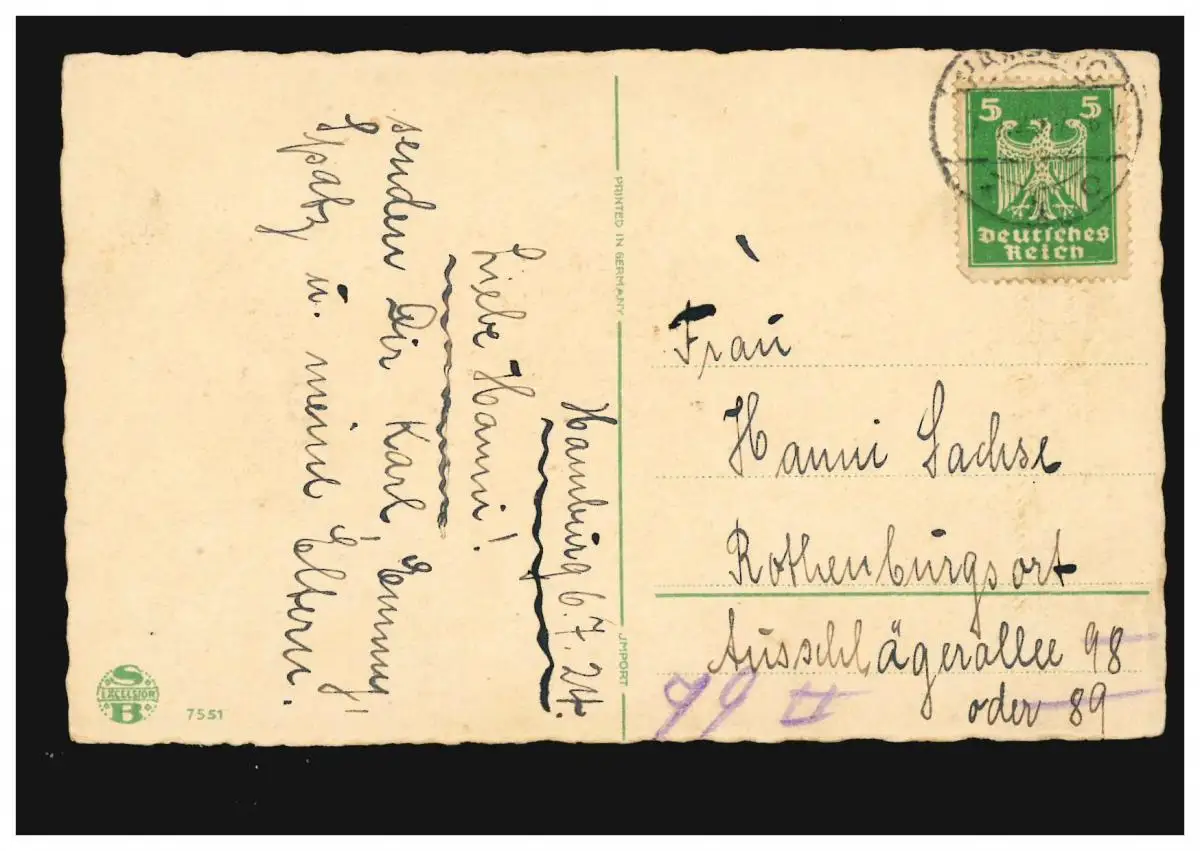 Hamburg 6.7.24.
Liebe Hanni!
senden Dir Karl, Emmy,
Spatz u. meine Eltern.
PRINTED IN GERMANY
IMPORT
S
EXCELSIOR
B
7551
5 5
Deutsches
Reich
Frau
Hanni Sachse
Rothenburgsort
Ausschlägerallee 98
oder 89
79 II